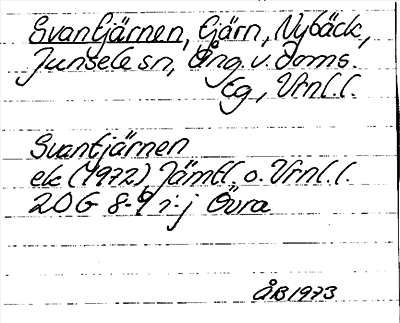 Svantjärnen, tjärn, Nybäck,
Junsele sn, Ång. v. doms.
tg, Vrnl. l.
Svantjärnen
ek (1972) Jämtl. o. Vrnl. l.
20G 8-9 i-j Övra
ÅB 1973